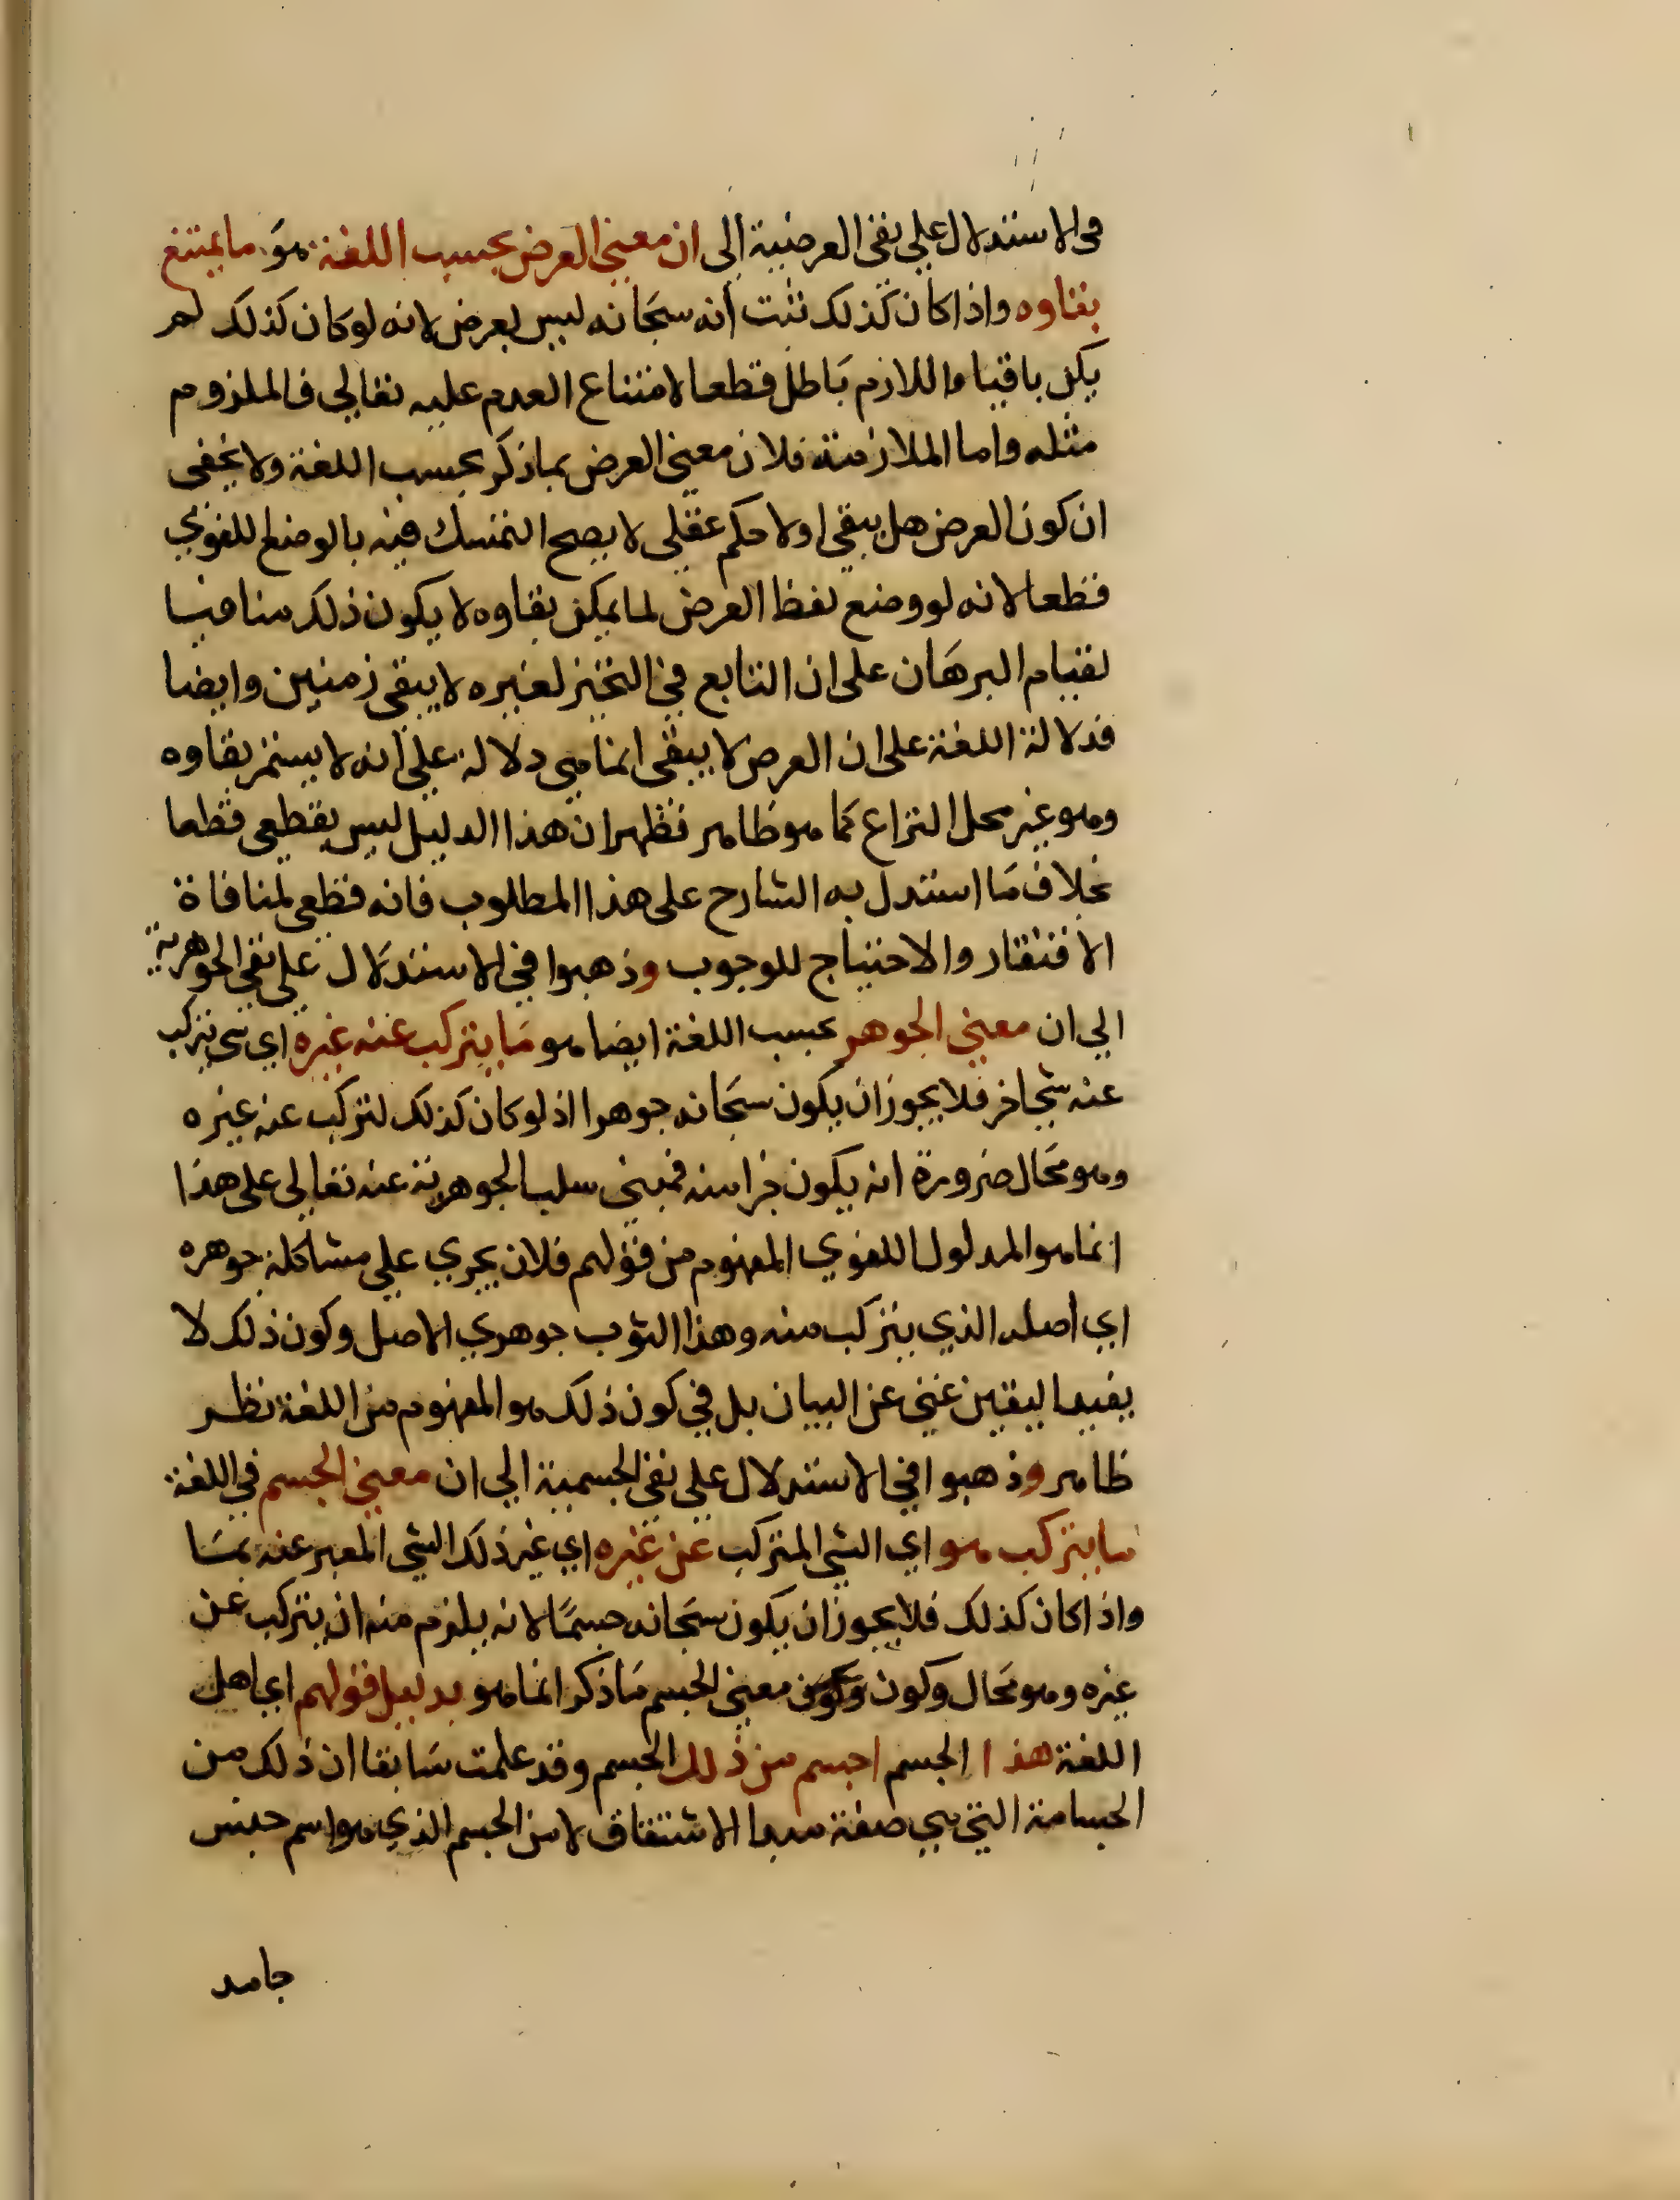 في الاستدلال علي نفي العرضية الى ان معني العرض بحسب اللغة هو ما يمتنع
بقاوه واذا كان كذلك ثبت أنه سبحانه ليس بعرض لانه لو كان كذلك لم
يكن باقيا واللازم باطل قطعا لامتناع العدم عليه تعالي فالملزوم
مثله واما الملازمة فلان معني العرض بماذكر بحسب اللغة ولا يخفى
ان كون العرض هل يبقي اولا حكم عقلي لا يصح التمسك فيه بالوضع اللغوي
قطعا لانه لو وضع لفظ العرض لما يمكن بقاوه لا يكون ذلك منافيا
لقيام البرهان على ان التابع في التحيز لغيره لا يبقى زمنين وايضا
فدلالة اللغة على ان العرض لا يبقى انما هي دلالة علي أنه لا يستمر بقاوه
وهو غير محل النزاع كما هو ظاهر فظهر ان هذا الدليل ليس بقطعي قطعا
بخلاف ما استدل به الشارح على هذا المطلوب فانه قطعي لمنافاة
الافتقار والاحتياج للوجوب وذهبوا في الاستدلال علي نفي الجوهرية
الي ان معني الجوهر بحسب اللغة ايضا هو ما يتركب عنه غيره اي شي يتركب
عنه شي اخر فلا يجوز ان يكون سبحانه جوهرا اذ لو كان كذلك لتركب عنه غيره
وهو محال ضرورة انه يكون جزا منه فمبنى سلب الجوهرية عنه تعالي على هذا
انما هو المدلول اللغوي المفهوم من قولهم فلان يجري علي مشاكلة جوهره
اي أصله الذي يتركب منه وهذا الثوب جوهري الاصل وكون ذلك لا
يفيد اليقين غني عن البيان بل في كون ذلك هو المفهوم من اللغة نظر
ظاهر وذهبوا في الاستدلال علي نفي الجسمية الي ان معني الجسم في اللغة
ما يتركب هو اي الشي المتركب عن غيره اي غير ذلك الشي المعبر عنه بما
واذا كان كذلك فلا يجوز ان يكون سبحانه جسما لانه يلزم منه ان يتركب عن
غيره وهو محال وكون معني الجسم ما ذكر انما هو بدليل قولهم اي اهل
اللغة هذا الجسم اجسم من ذلك الجسم وقد علمت سابقا ان ذلك من
الجسامة التي هي صفة مبدا الاشتقاق لا من الجسم الذي هو اسم جنس
جامد